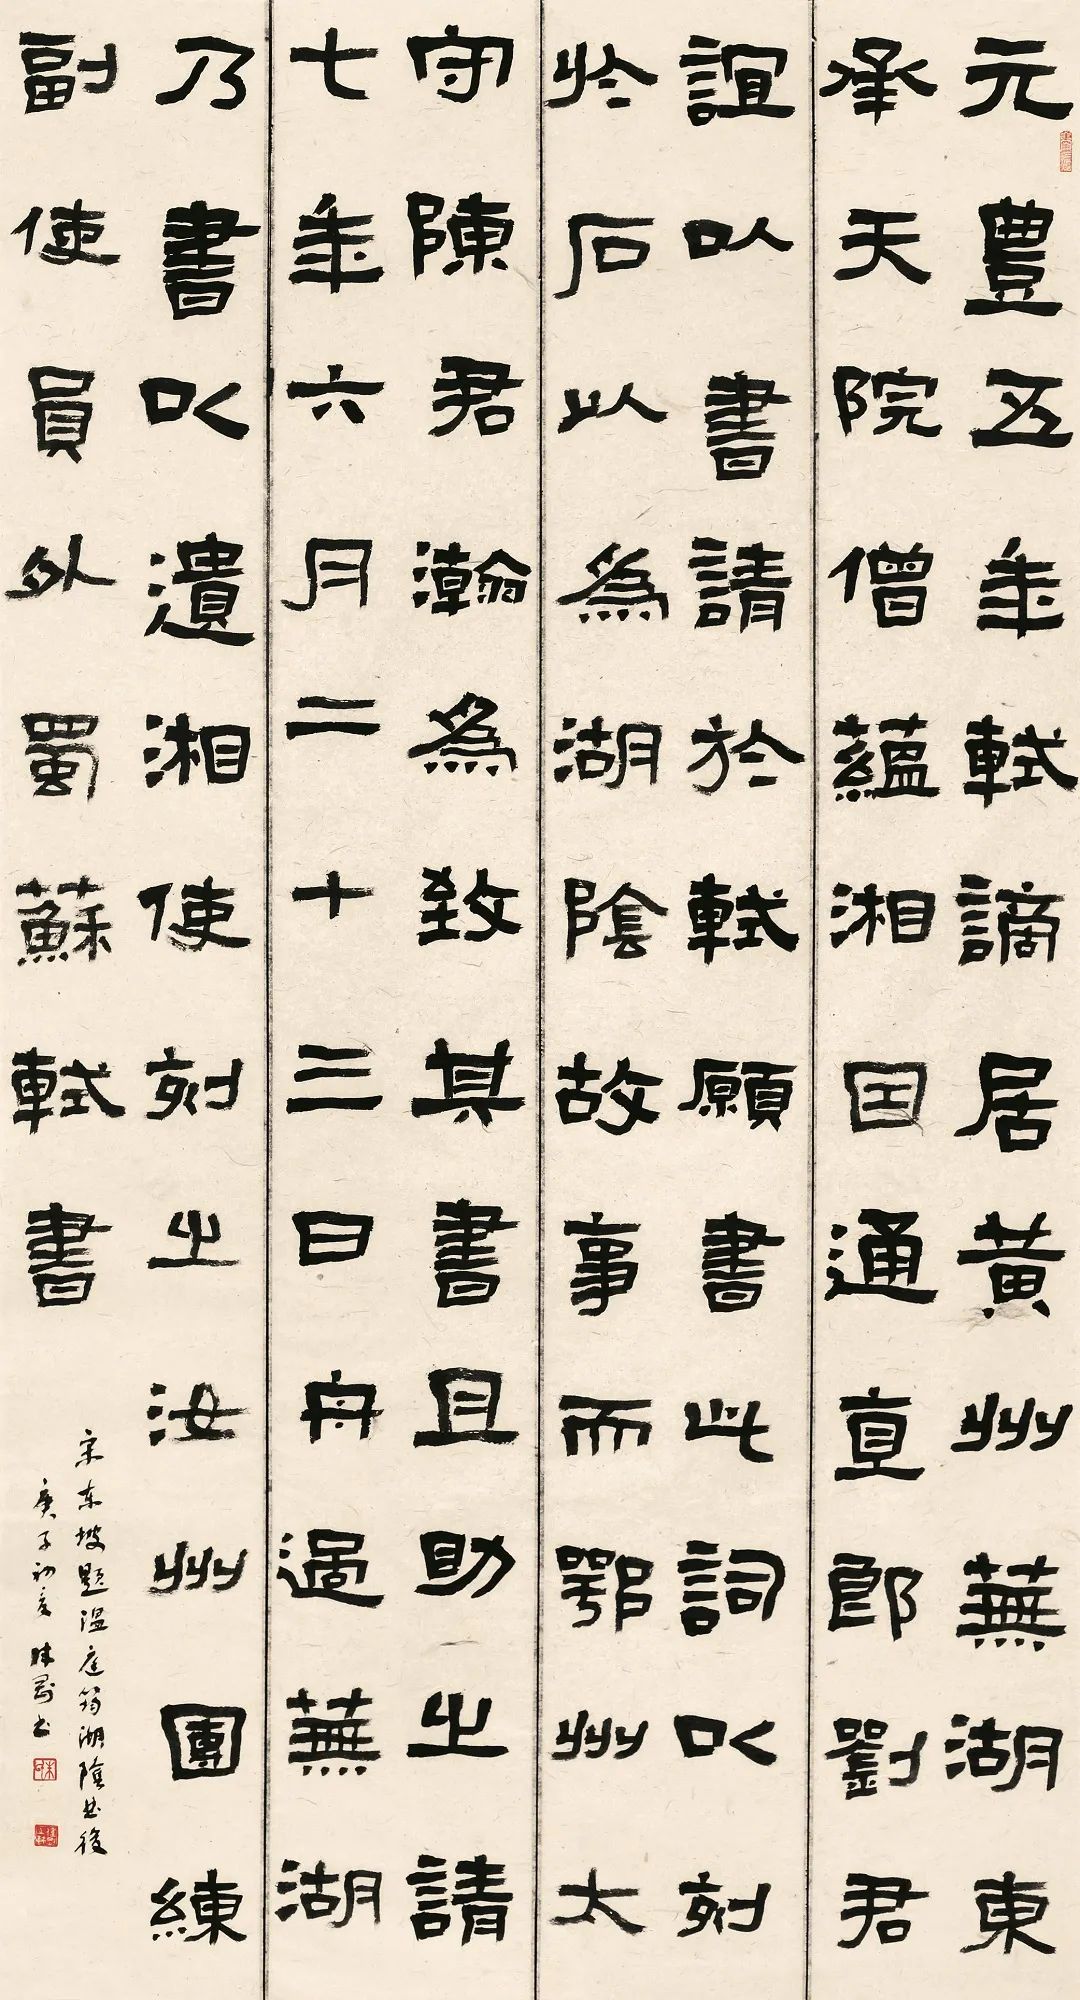 元豐五年軾謫居黃州蕪湖東
承天院僧蘊湘因通直郎劉君
誼以書請於軾願書此詞以刻
於石以為湖陰故事而鄂州太
守陳君瀚為致其書且助之請
七年六月二十三日舟過蕪湖
乃書以遺湘使刻之汝州團練
副使員外蜀蘇軾書
宋东坡题温庭筠湖陰曲後
庚子初夏